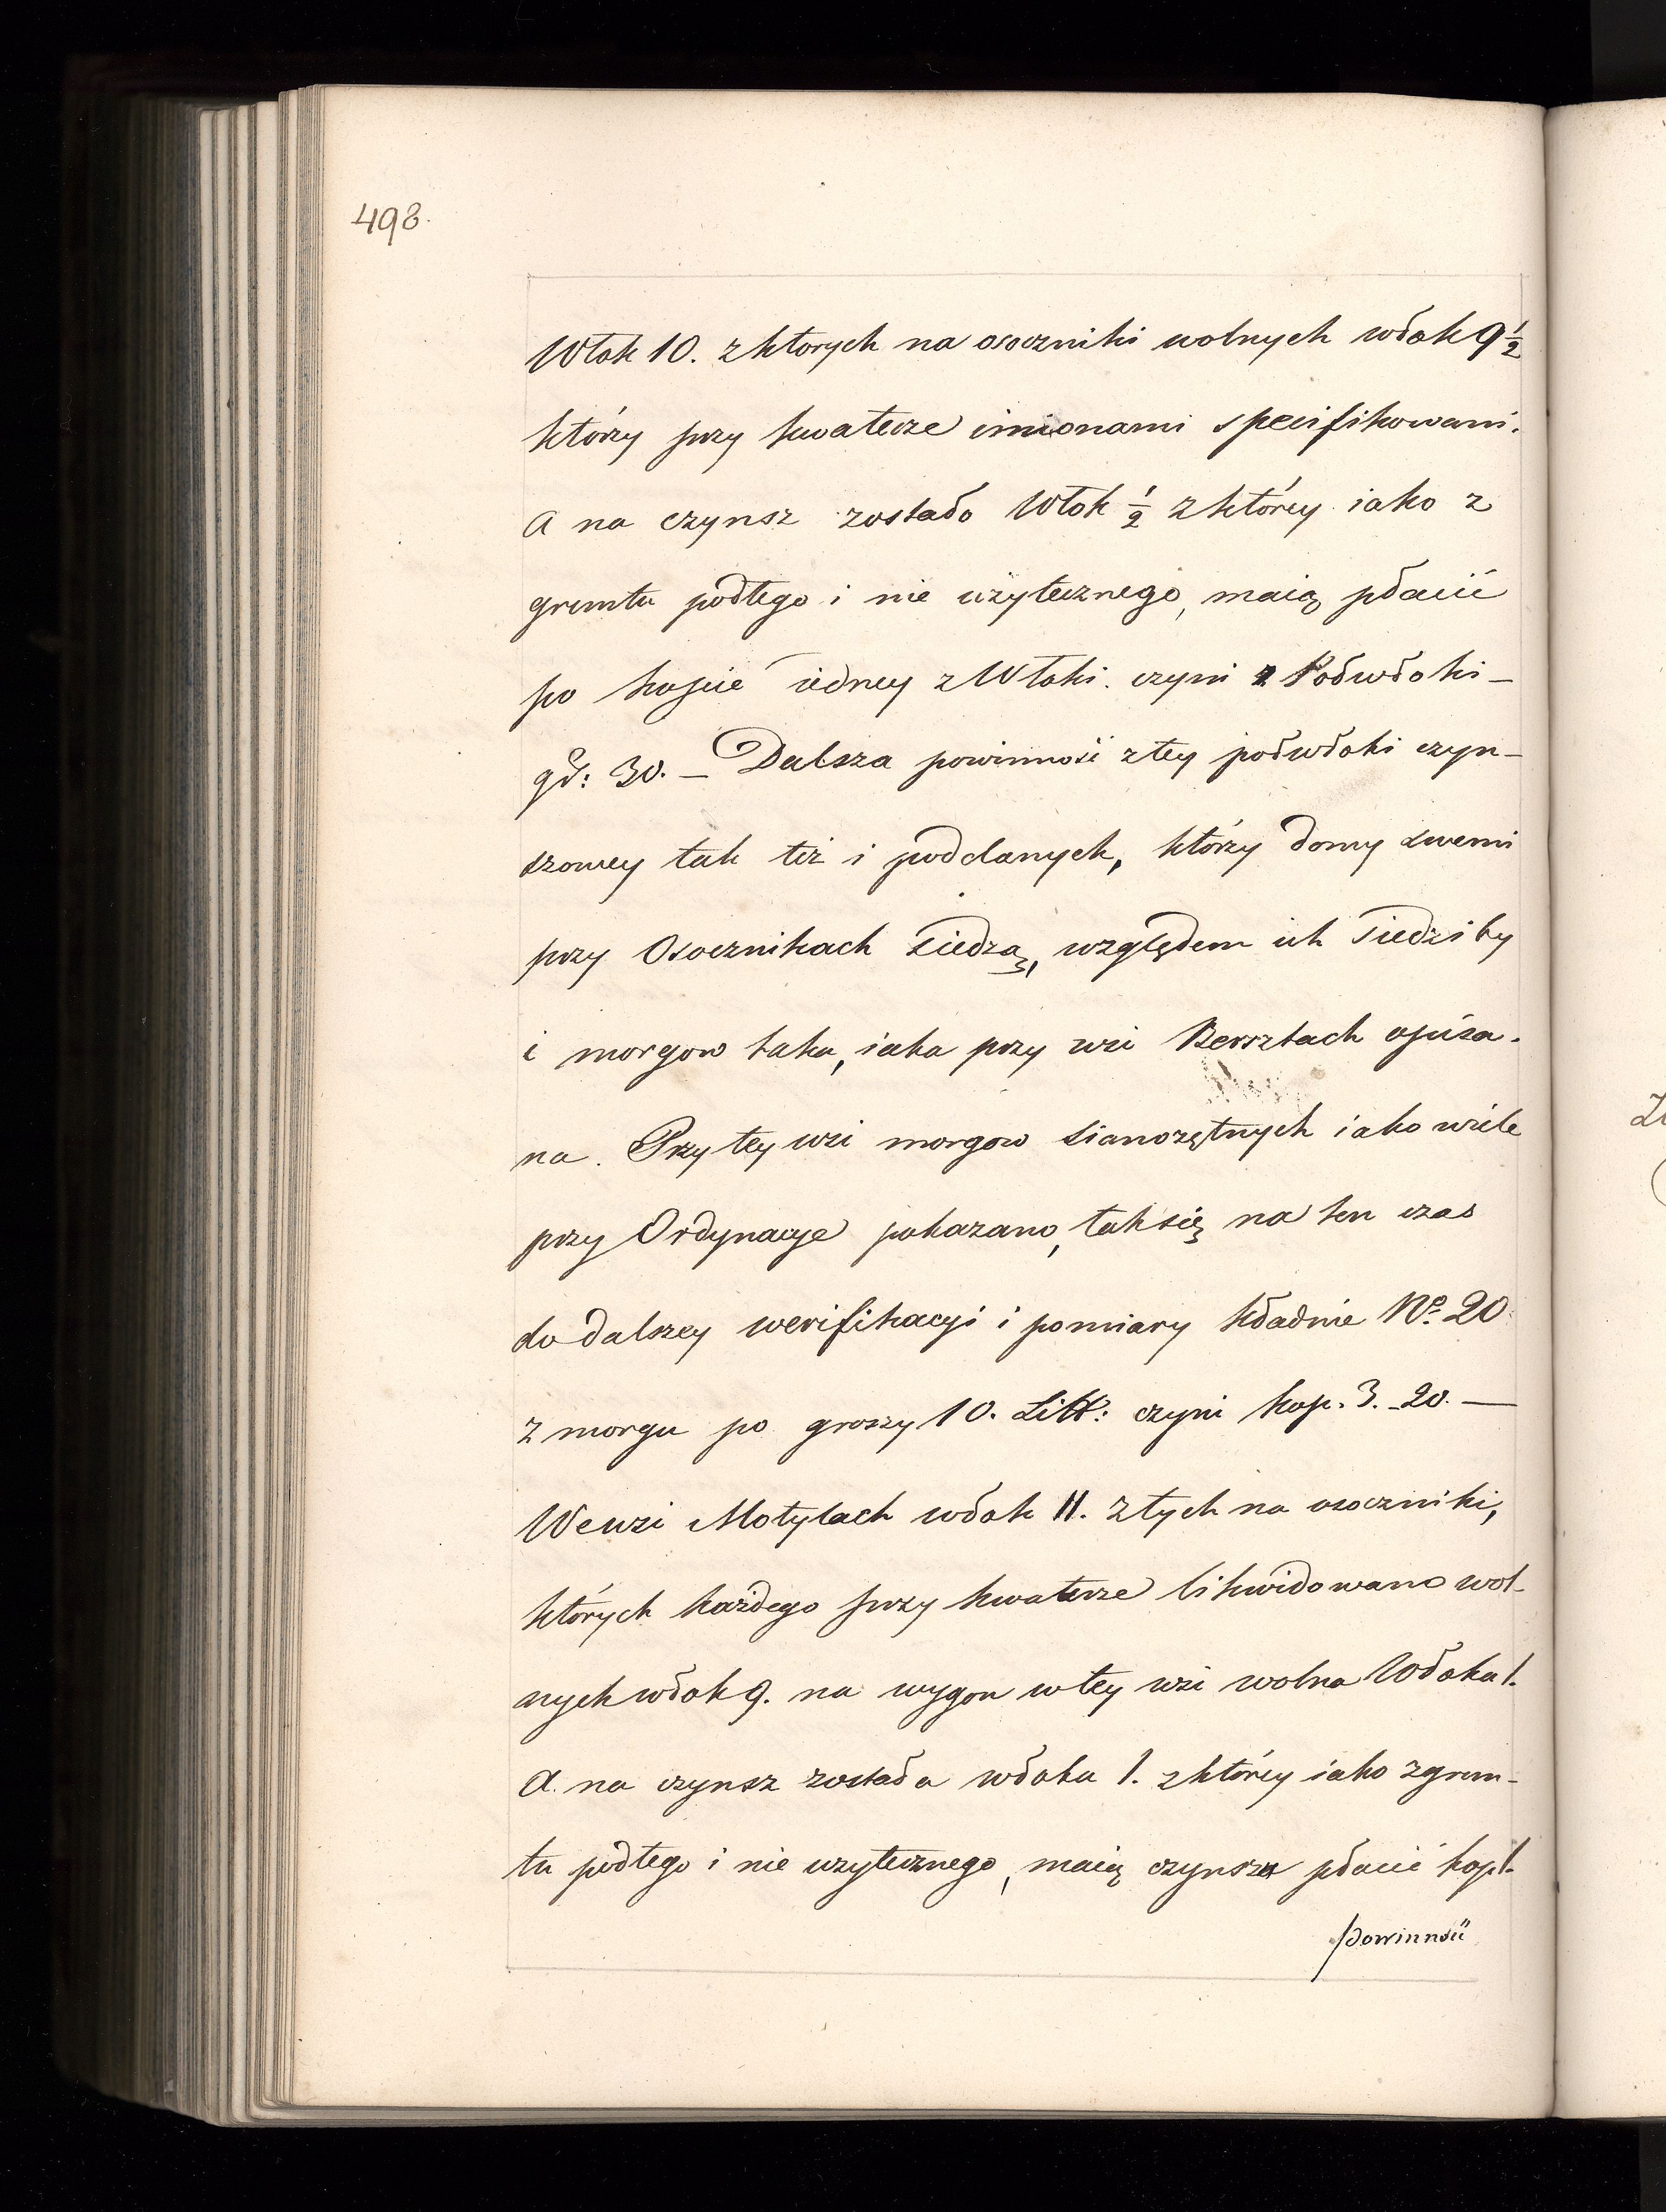 498.
Włok 10. z ktorych na osoczniki wolnych włok 9 1/2
którzy przy kwaterze imionami specifikowani.
A na czynsz zostało Włok 1/2 z którey iako z
gruntu podłego i nie użytecznego, maią płacić
po kopie iedney z Włoki. czyni z Połwłoki –
gł: 30. – Dalsza powinność z tey połwłoki czyn–
szowey tak też i poddanych, którzy domy swemi
przy Osocznikach siedzą, względem ich siedziby
i morgow taka, iaka przy wsi Bersztach opisa-
na. Przy tey wsi morgow sianożętnych iako wiele
przy Ordynacye pokazano, tak się na ten czas
do dalszey werifikacyi i pomiary kładnie No. 20
z morgu po groszy 10. Litt: czyni kop. 3. 20. —
We wsi Motylach włok 11. z tych na osoczniki,
których każdego przy kwaterze likwidowano wol-
nych włok 9. na wygon w tey wsi wolna Włoka 1.
A. na czynsz została włoka 1. z którey iako z grun-
tu podłego i nie uzytecznego, maią czynszu płacić kop 1.
powinność